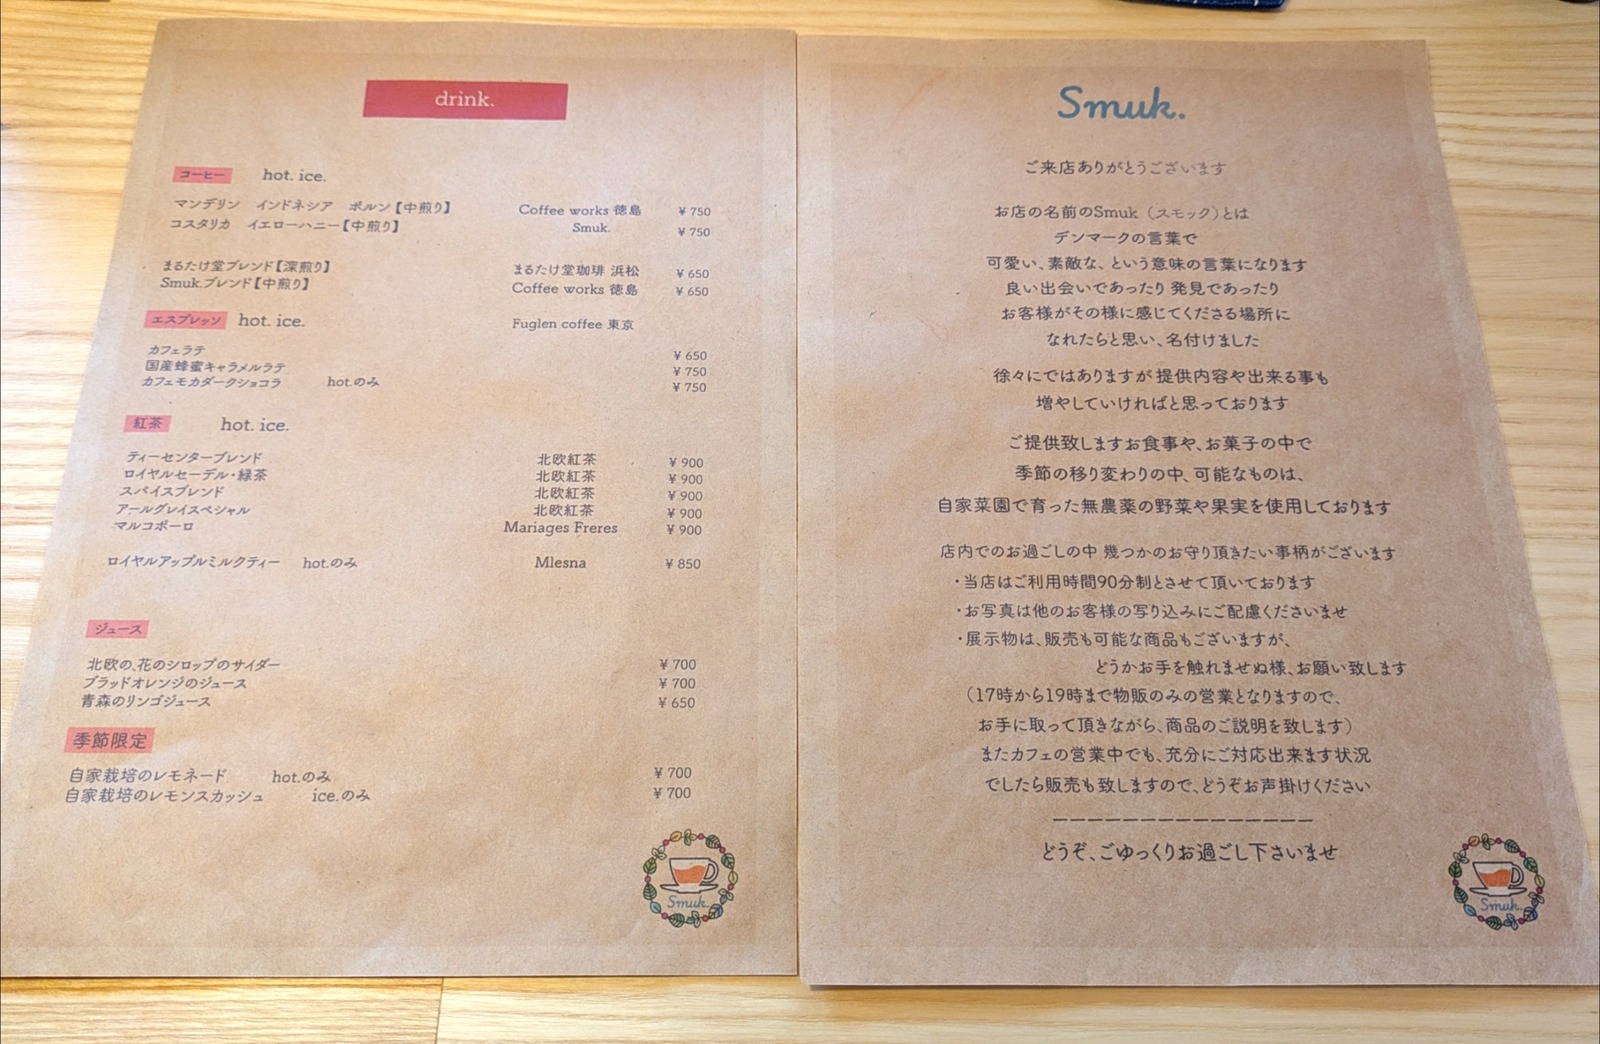 drink.
コーヒー hot. ice.
マンデリン インドネシア ポルン【中煎り】 Coffee works 徳島 ¥750
コスタリカ イエローハニー【中煎り】 Smuk. ¥750
まるたけ堂ブレンド【深煎り】 まるたけ堂珈琲 浜松 ¥650
Smuk.ブレンド【中煎り】 Coffee works 徳島 ¥650
エスプレッソ hot. ice. Fuglen coffee 東京
カフェラテ ¥650
国産蜂蜜キャラメルラテ ¥750
カフェモカダークショコラ hot.のみ ¥750
紅茶 hot. ice.
ティーセンターブレンド 北欧紅茶 ¥900
ロイヤルセーデル・緑茶 北欧紅茶 ¥900
スパイスブレンド 北欧紅茶 ¥900
アールグレイスペシャル 北欧紅茶 ¥900
マルコポーロ Mariages Freres ¥900
ロイヤルアップルミルクティー hot.のみ Mlesna ¥850
ジュース
北欧の、花のシロップのサイダー ¥700
ブラッドオレンジのジュース ¥700
青森のリンゴジュース ¥650
季節限定
自家栽培のレモネード hot.のみ ¥700
自家栽培のレモンスカッシュ ice.のみ ¥700
Smuk.
Smuk.
ご来店ありがとうございます
お店の名前のSmuk（スモック）とは
デンマークの言葉で
可愛い、素敵な、という意味の言葉になります
良い出会いであったり 発見であったり
お客様がその様に感じてくださる場所に
なれたらと思い、名付けました
徐々にではありますが 提供内容や出来る事も
増やしていければと思っております
ご提供致しますお食事や、お菓子の中で
季節の移り変わりの中、可能なものは、
自家菜園で育った無農薬の野菜や果実を使用しております
店内でのお過ごしの中 幾つかのお守り頂きたい事柄がございます
・当店はご利用時間90分制とさせて頂いております
・お写真は他のお客様の写り込みにご配慮くださいませ
・展示物は、販売も可能な商品もございますが、
どうかお手を触れませぬ様、お願い致します
（17時から19時まで物販のみの営業となりますので、
お手に取って頂きながら、商品のご説明を致します）
またカフェの営業中でも、充分にご対応出来ます状況
でしたら販売も致しますので、どうぞお声掛けください
ーーーーーーーーーーーーーーー
どうぞ、ごゆっくりお過ごし下さいませ
Smuk.